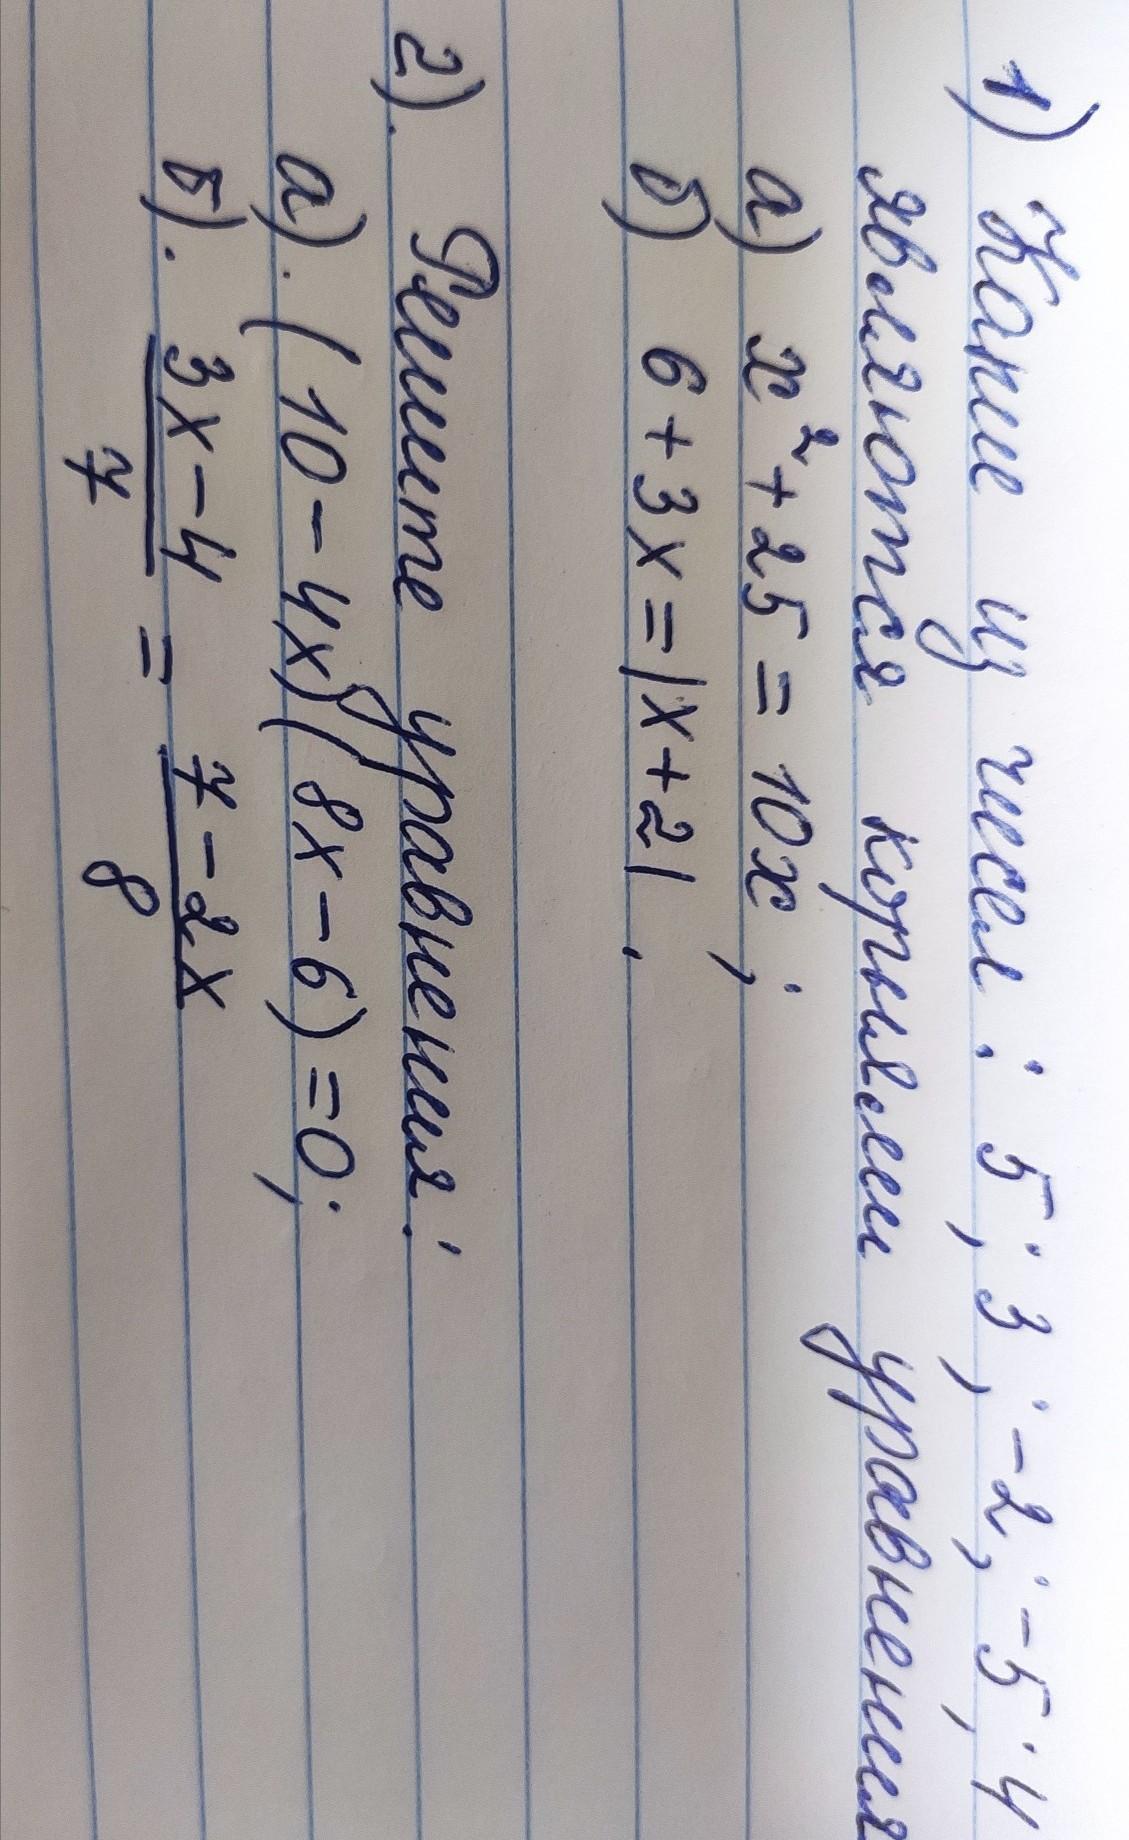 1) Какие из чисел: 5; 3; -2; -5; 4
являются корнями уравнения
а) x²+25=10x;
б) 6+3x=|x+2|.
2). Решите уравнения:
а). (10-4x)(8x-6)=0;
б). \frac{3x-4}{7} = \frac{7-2x}{8}